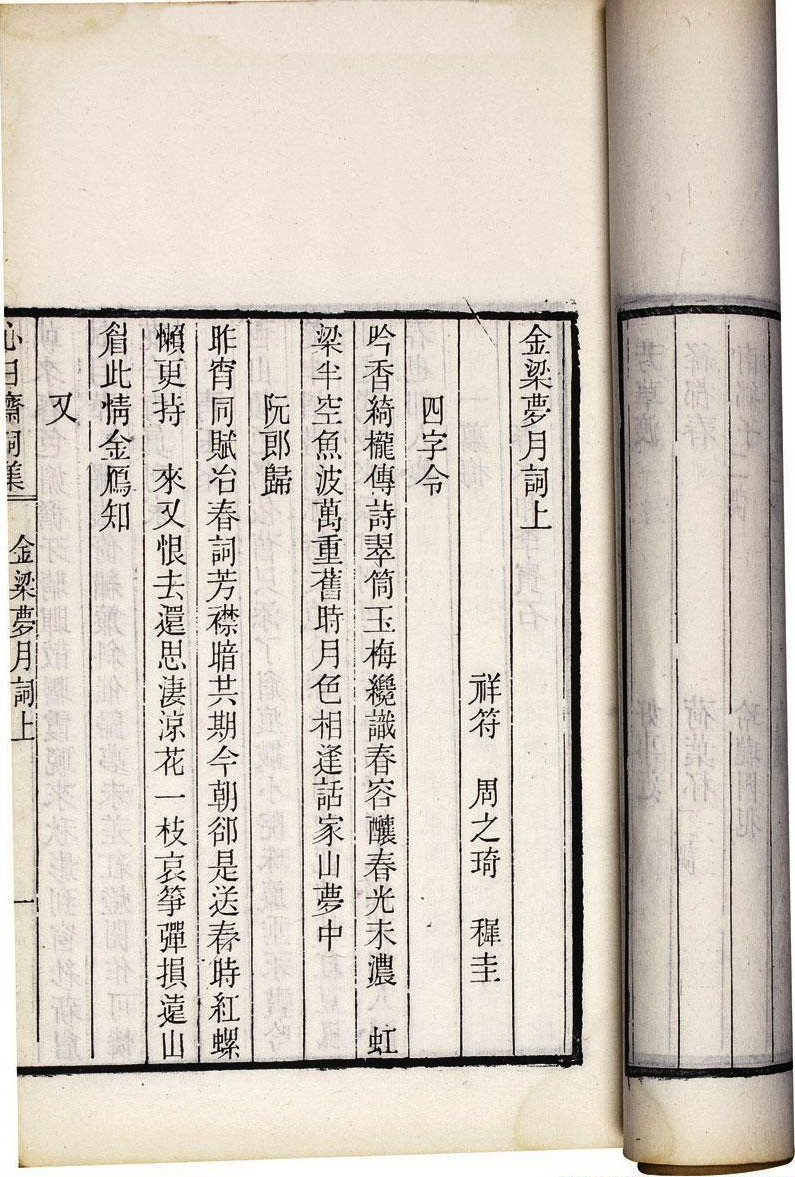 金梁夢月詞上
祥符　周之琦　穉圭
四字令
吟香綺櫳傳詩翠筒玉梅纔識春容釀春光未濃　虹
梁半空魚波萬重舊時月色相逢話家山夢中
阮郎歸
昨宵同賦冶春詞芳襟暗共期今朝卻是送春時紅螺
懶更持　來又恨去還思淒涼花一枝哀箏彈損遠山
眉此情金鴈知
又
心日齋詞集　金梁夢月詞上　一